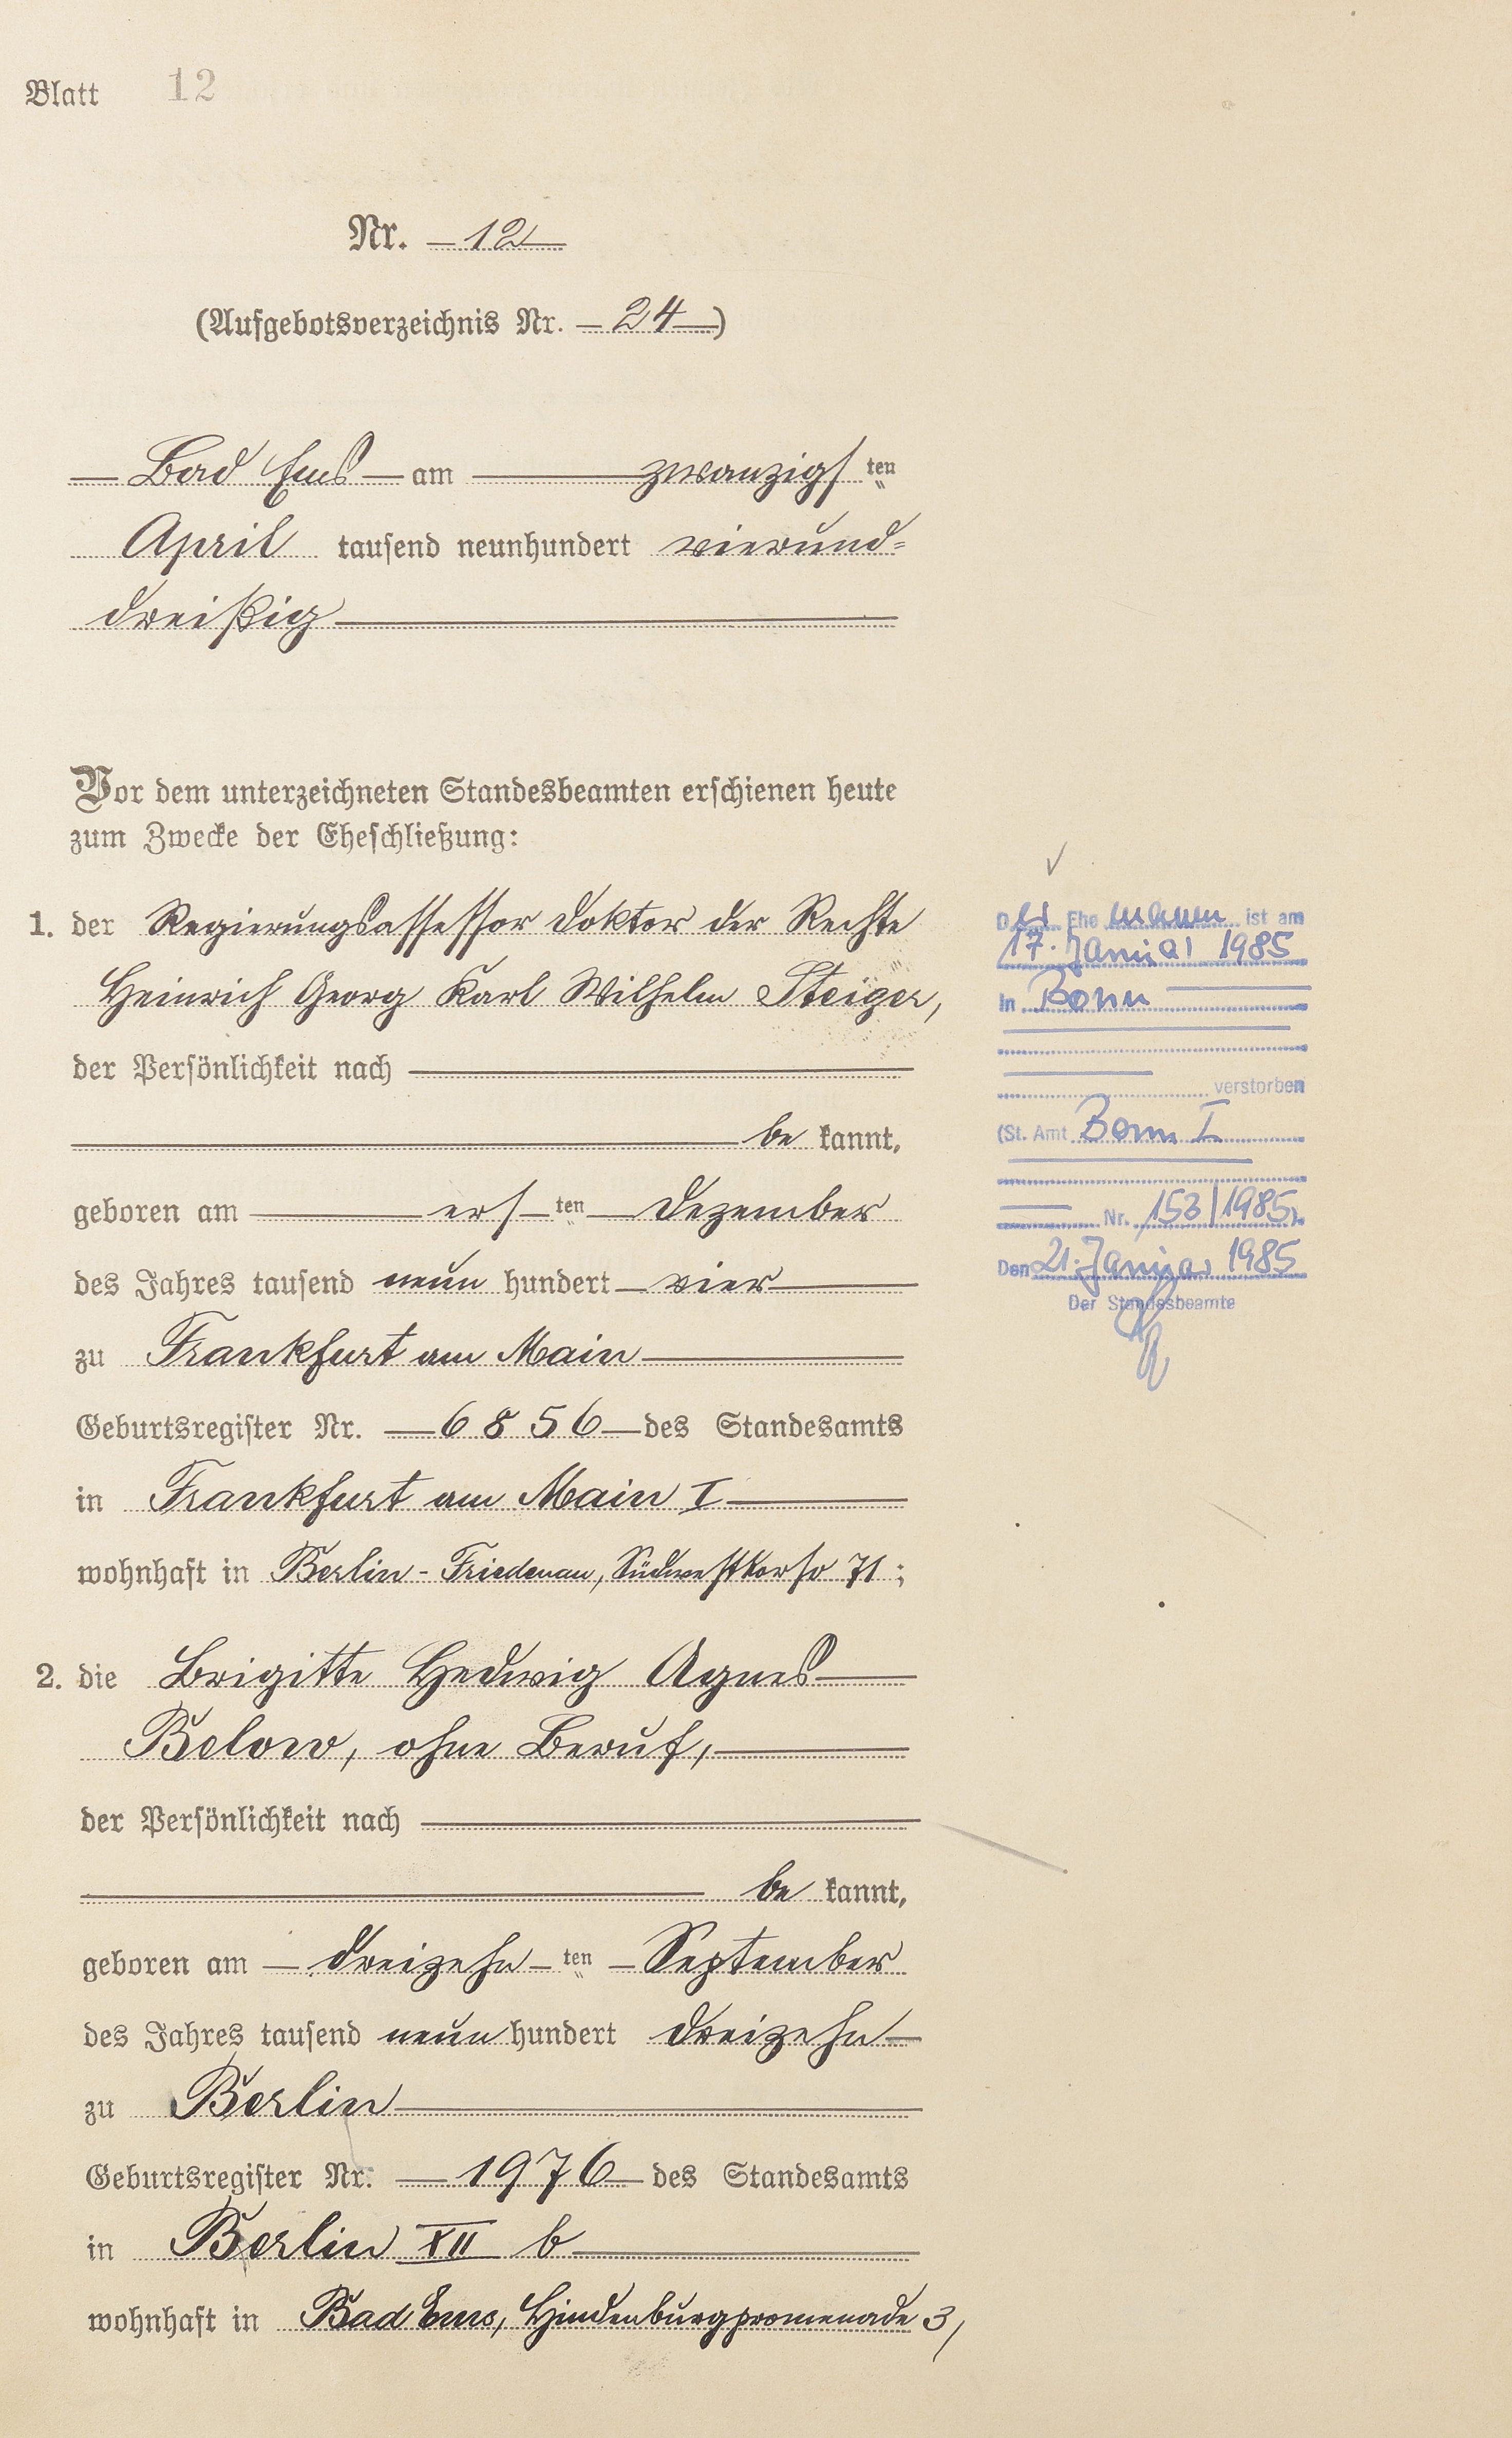 Blatt 12
Nr. 12
(Aufgebotsverzeichnis Nr. 24)
Bad Ems am zwanzigsten
April tausend neunhundert vierund=
dreißig
Vor dem unterzeichneten Standesbeamten erschienen heute
zum Zwecke der Eheschließung:
1. der Regierungsassessor Doktor der Rechte
Heinrich Georg Karl Wilhelm Steiger,
der Persönlichkeit nach
be kannt,
geboren am ersten Dezember
des Jahres tausend neun hundert vier
zu Frankfurt am Main
Geburtsregister Nr. 6856 des Standesamts
in Frankfurt am Main I
wohnhaft in Berlin-Friedenau, Südwestkorso 71;
2. die Brigitte Hedwig Agnes
Below, ohne Beruf,
der Persönlichkeit nach
be kannt,
geboren am dreizehnten September
des Jahres tausend neun hundert dreizehn
zu Berlin
Geburtsregister Nr. 1976 des Standesamts
in Berlin XII b
wohnhaft in Bad Ems, Hindenburgpromenade 3,
Der Ehemann ist am
17. Januar 1985
in Bonn
verstorben
(St. Amt Bonn I
Nr. 153/1985).
Den 21. Januar 1985
Der Standesbeamte